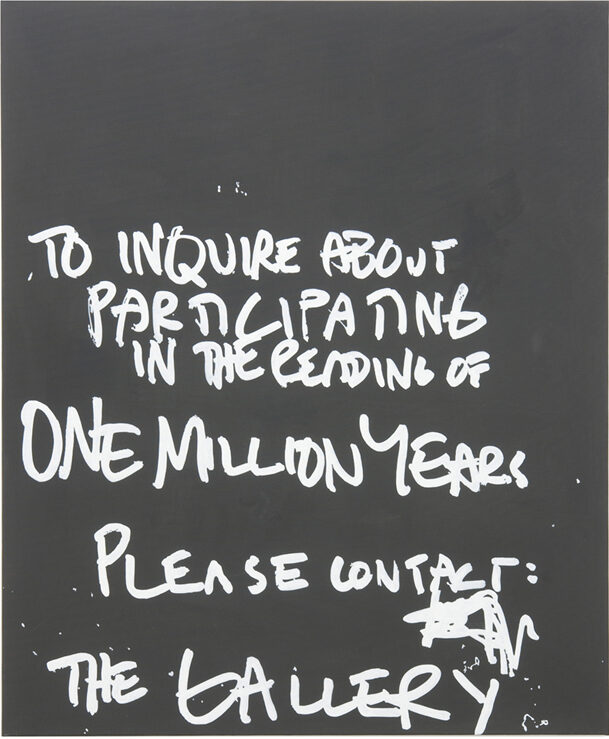 TO INQUIRE ABOUT
PARTICIPATING
IN THE READING OF
ONE MILLION YEARS
PLEASE CONTACT:
THE GALLERY